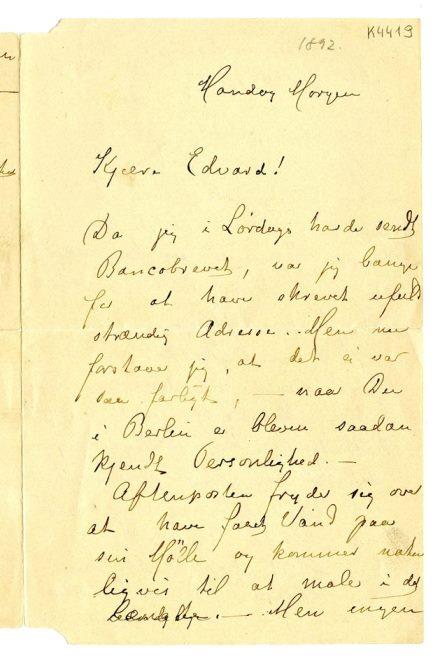 1892.
K4419
Mandag Morgen
Kjære Edvard!
Da jeg i Lørdags havde sendt
Bancobrevet, var jeg bange
for at have skrevet ufuld
stændig Adresse. Men nu
forstaar jeg, at det ei var
saa farligt, – naar Du
i Berlin er bleven saadan
kjendt Personlighed. –
Aftenposten fryder sig over
at have faaet Vand paa
sin Mølle og kommer natur
ligvis til at male i det
– Men ingen